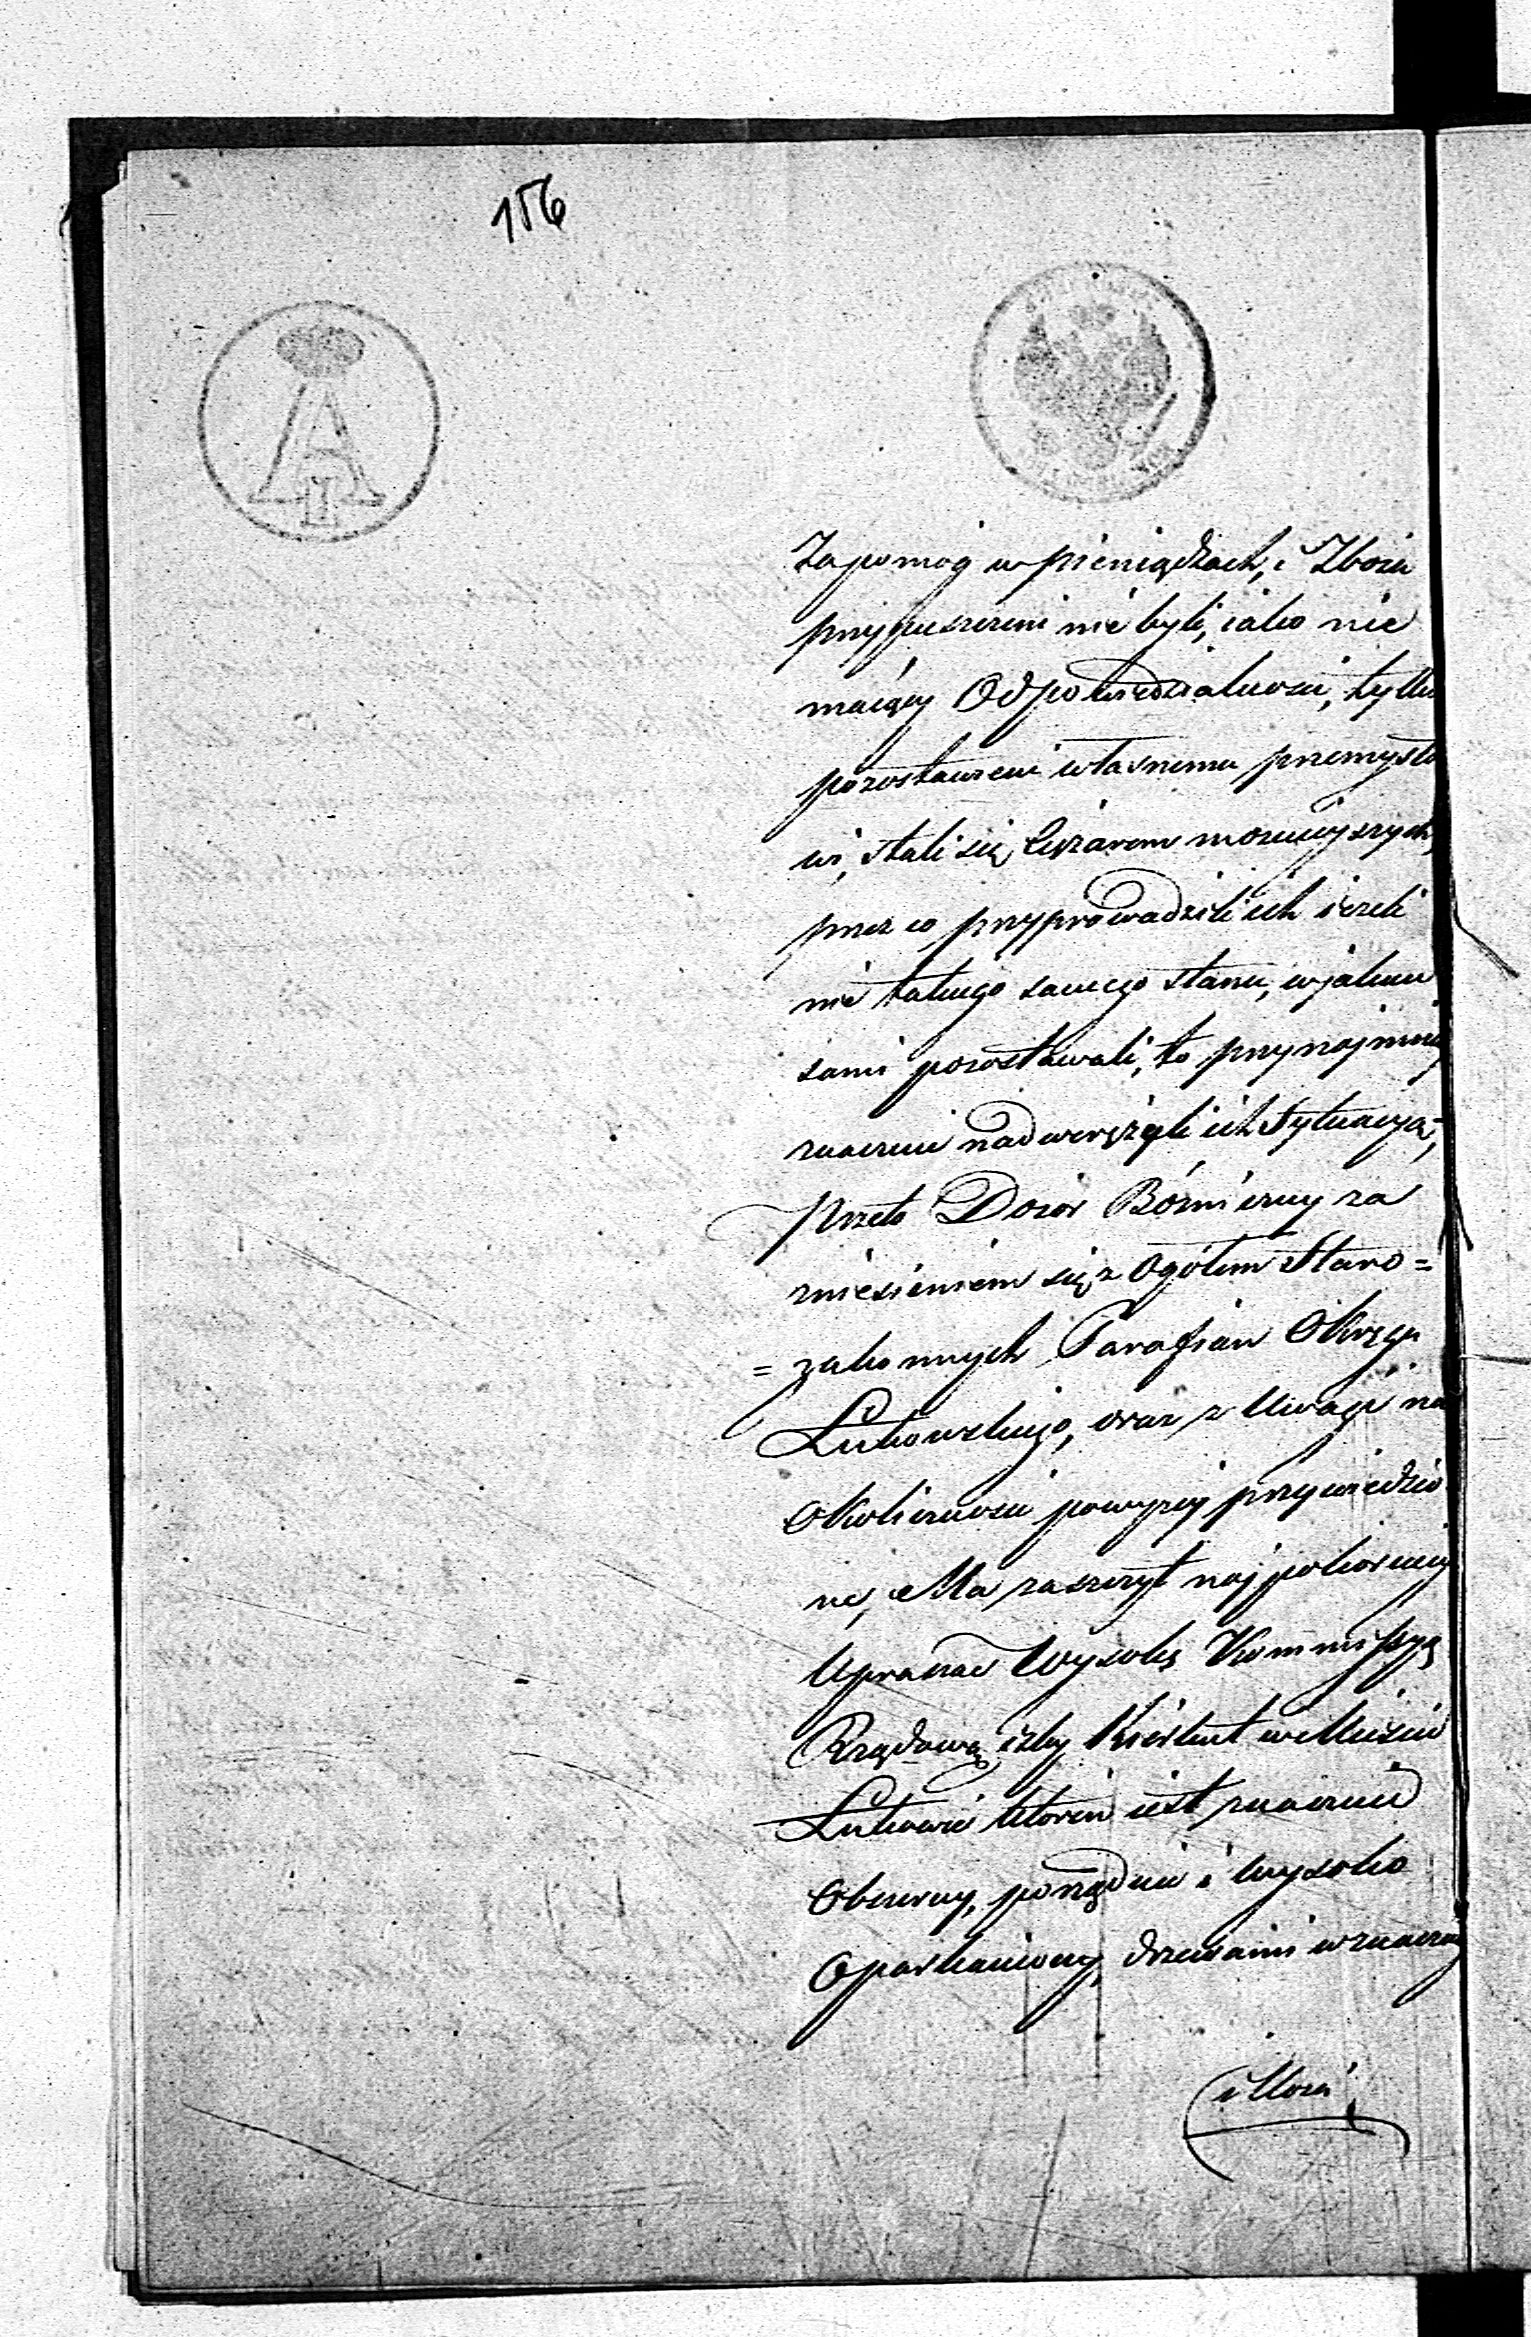 156
A I
Zapomog w pieniądzach, i Zbożu
przypuszczeni nie byli, iako nie
maiący Odpowiedzialności, tylko
pozostawieni własnemu przemysło
wi, stali się Ciężarem możnieyszych,
przez co przyprowadzili ich ieżeli
nie takiego samego stanu, w jakim
sami pozostawali, to przynajmniey
znacznie nadwerężyli ich Sytuacyą,
Przeto Dozór Bóżniczny za
zniesieniem się z Ogółem Staro=
=zakonnych Parafian Okręgu
Łukowskiego, oraz z Uwagi na
Okoliczności powyżey przywiedzio
ne, Ma zaszczyt najpokorniey
Upraszać Wysoką Kommissyą
Rządową, iżby Kirkut w Mieście
Łukowie który iest znacznie
Obszerny, porządnie i wysoko
Oparkaniony, drzewami w znaczney
illości